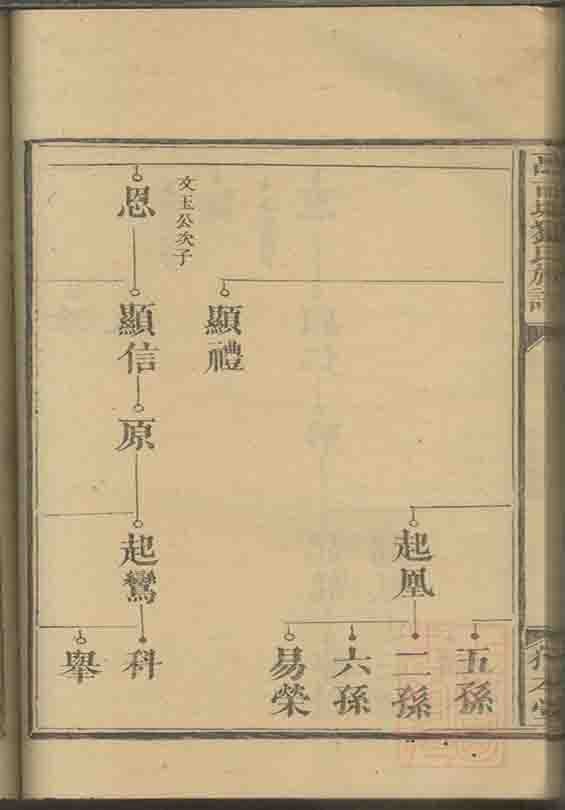 文玉公次子
恩
顯禮
顯信
原
起凰
起鸞
五孫
二孫
六孫
易榮
科
舉